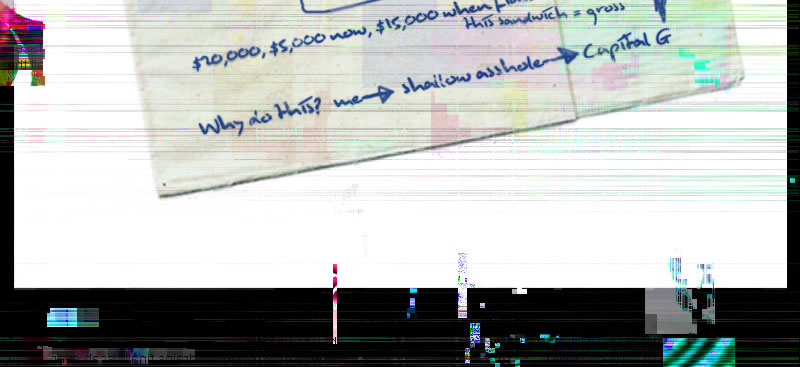 $20,000, $5,000 now, $15,000 when
this sandwich = gross
Why do this? me → shallow asshole → Capital G